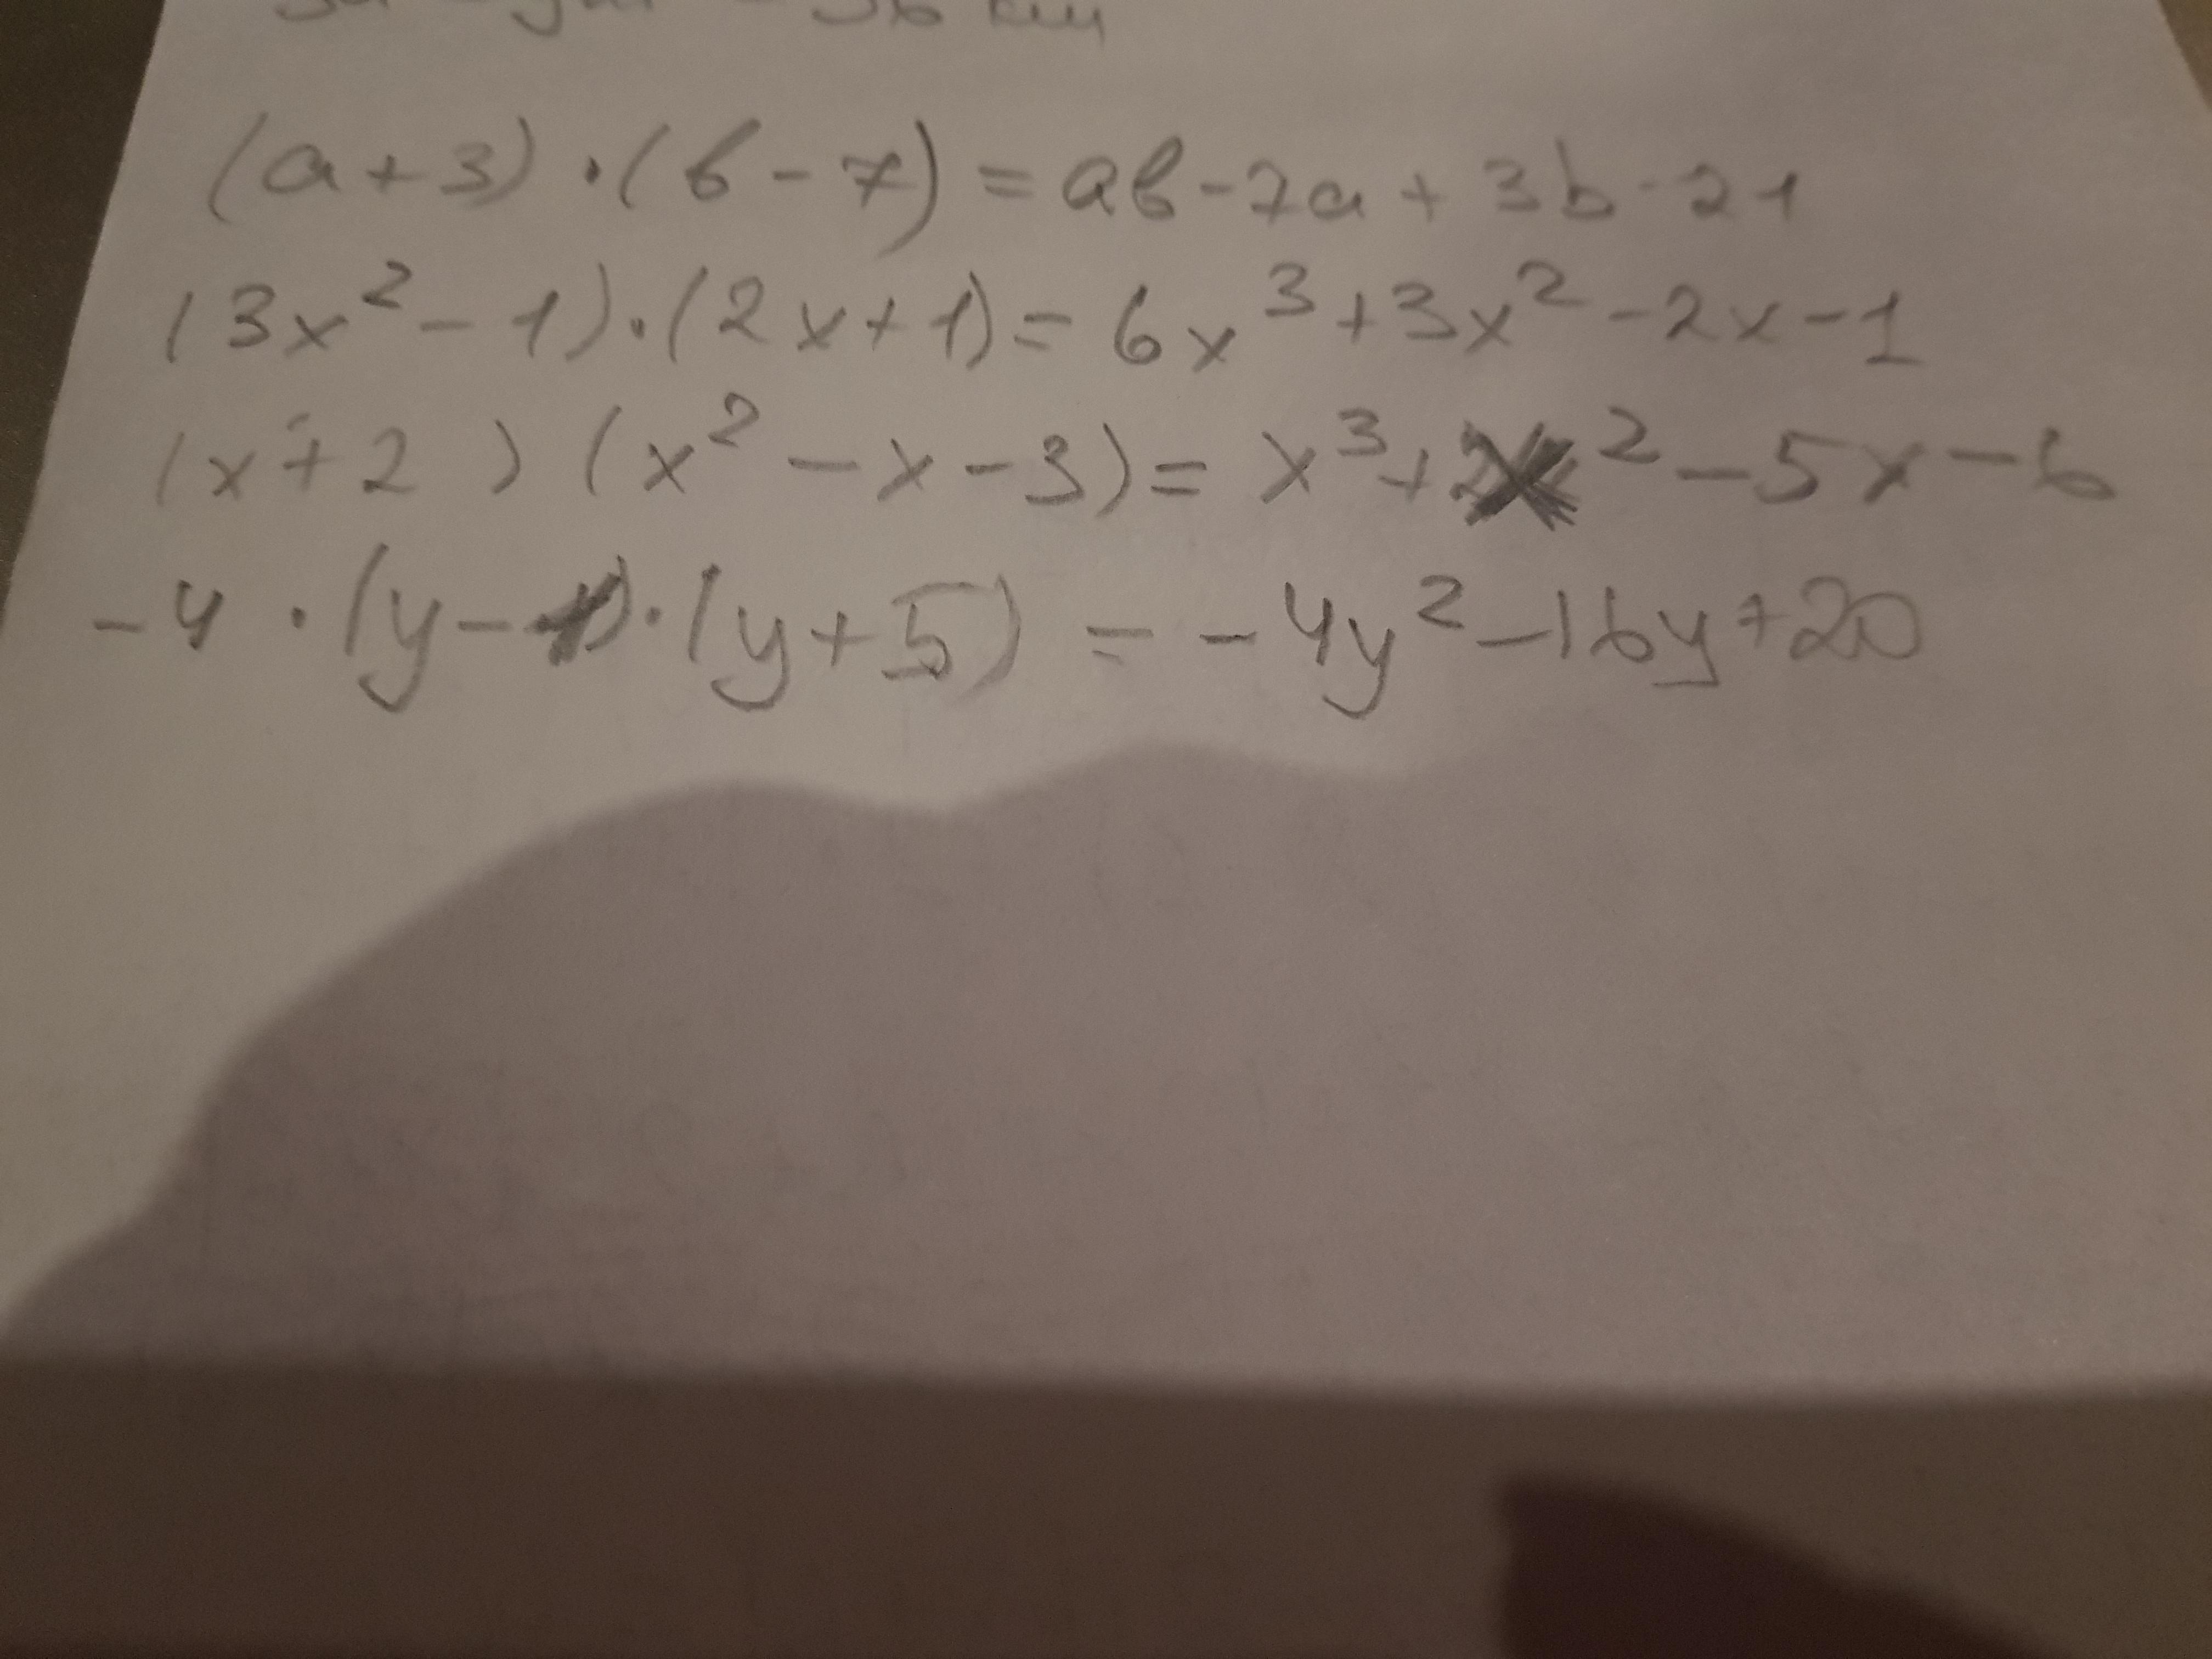 (a+3)·(b-7)=ab-7a+3b-21
(3x²-1)·(2x+1)=6x³+3x²-2x-1
(x+2)(x²-x-3)=x³+x²-5x-6
-4·(y-1)·(y+5)=-4y²-16y+20